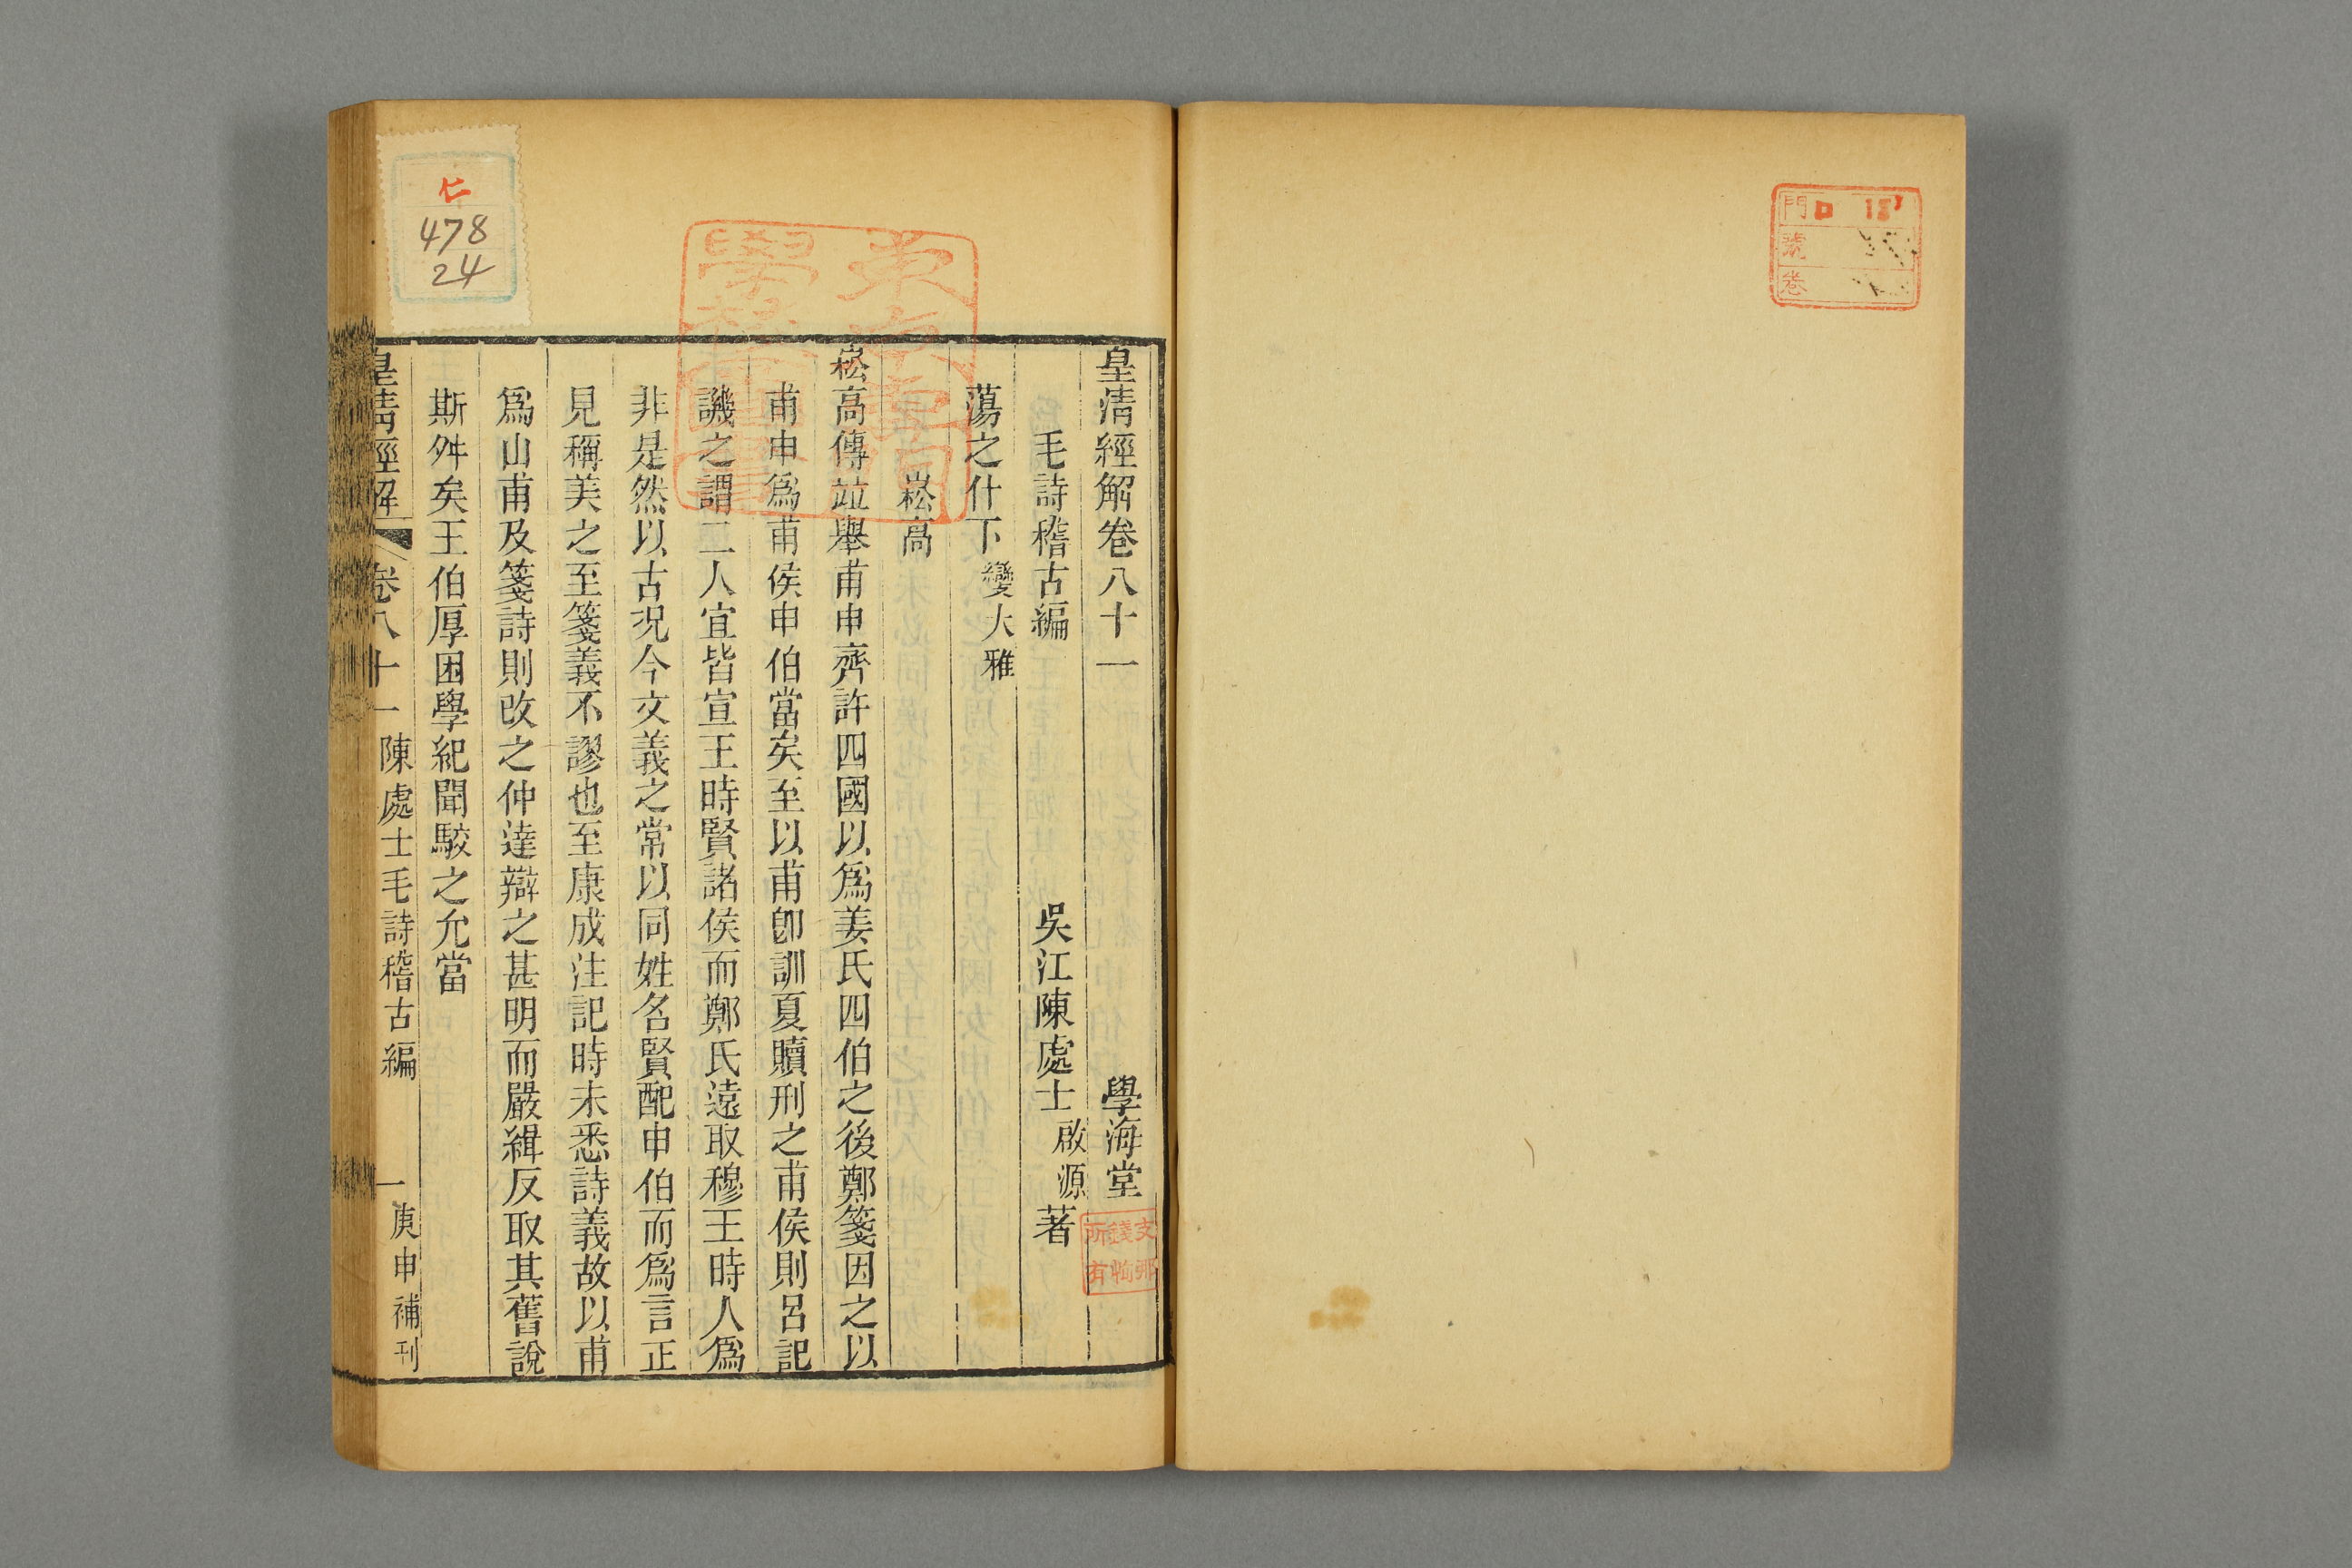 門 口 15
號
卷
皇淸經解卷八十一 學海堂
毛詩稽古編 吳江陳處士啟源著
蕩之什下 變大雅
崧高
崧高傳竝舉甫申齊許四國以爲姜氏四伯之後鄭箋因之以
甫申爲甫侯申伯當矣至以甫卽訓夏贖刑之甫侯則呂記
譏之謂二人宜皆宣王時賢諸侯而鄭氏遠取穆王時人爲
非是然以古況今文義之常以同姓名賢配申伯而爲言正
見稱美之至箋義不謬也至康成注記時未悉詩義故以甫
爲山甫及箋詩則改之仲達辯之甚明而嚴緝反取其舊說
斯舛矣王伯厚困學紀聞駮之允當
皇淸經解 卷八十一 陳處士毛詩稽古編 一 庚申補刊
仁
478
24